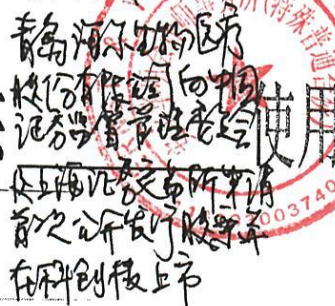 青岛海尔生物医疗
股份有限公司向中国
证券监督管理委员会
使用
及上海证券交易所申请
首次公开发行股票并
在科创板上市
特殊普通